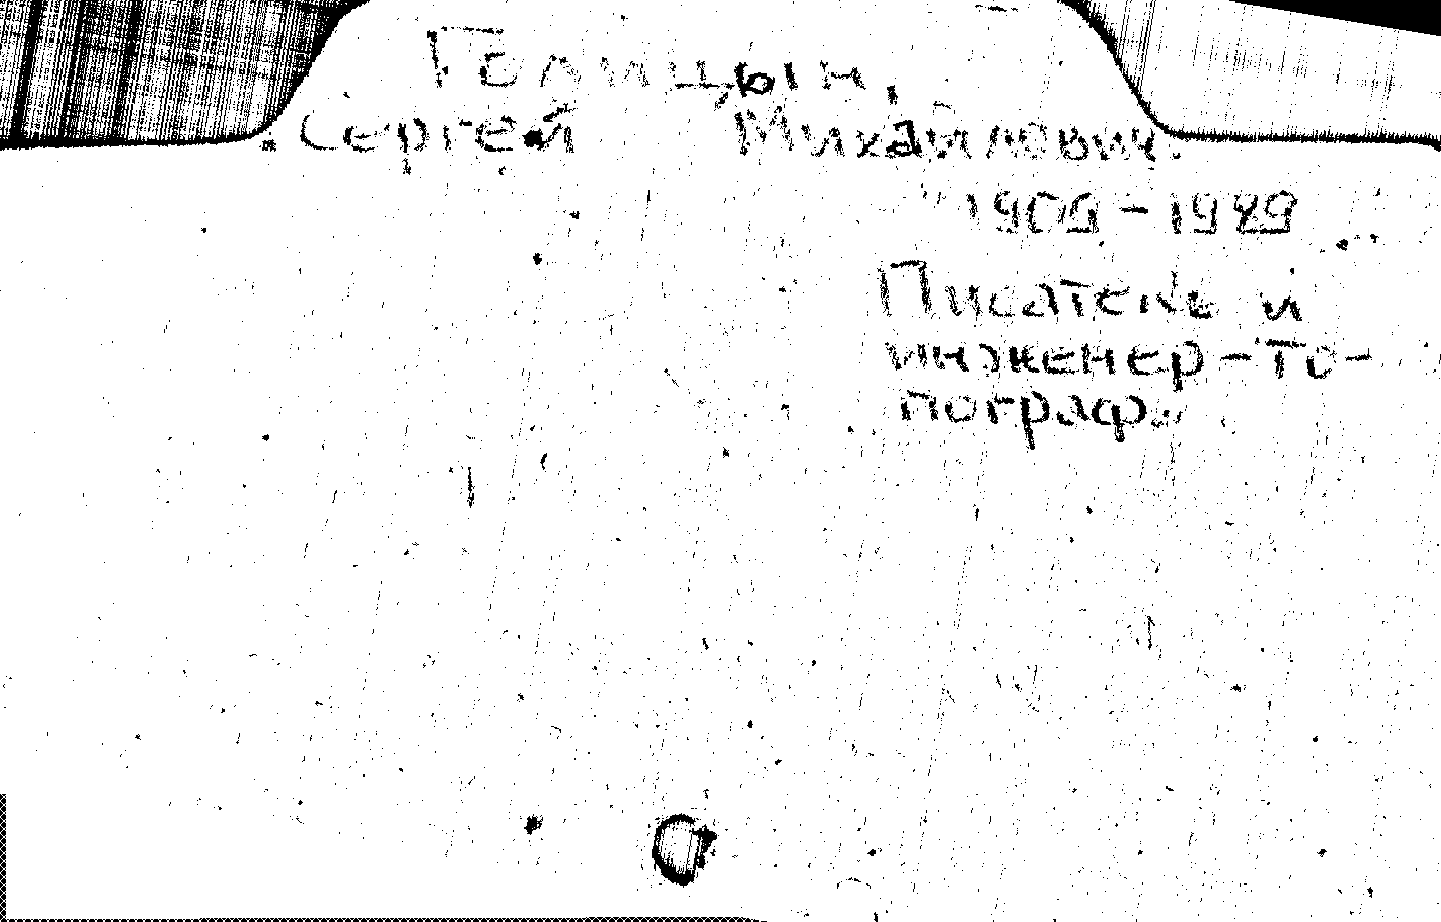 Голицын,
Сергей Михайлович.
1909-1989
Писатель и
инженер-то-
пограф.